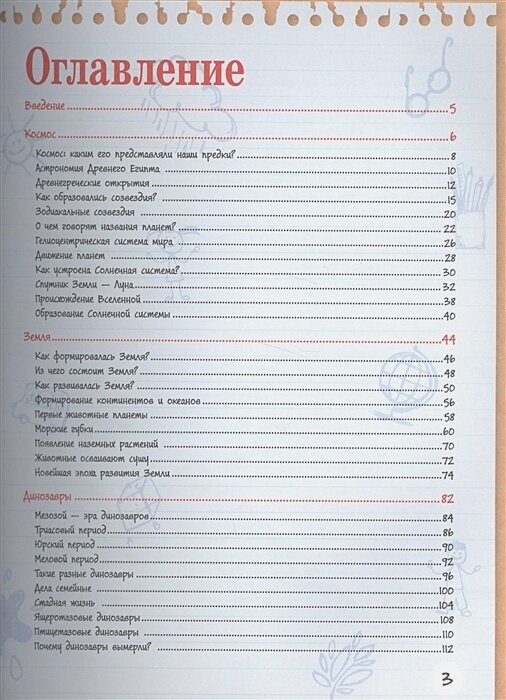 Оглавление
Введение 5
Космос 6
Космос: каким его представляли наши предки? 8
Астрономия Древнего Египта 10
Древнегреческие открытия 12
Как образовались созвездия? 15
Зодиакальные созвездия 20
О чем говорят названия планет? 22
Гелиоцентрическая система мира 26
Движение планет 28
Как устроена Солнечная система? 30
Спутник Земли — Луна 32
Происхождение Вселенной 38
Образование Солнечной системы 40
Земля 44
Как формировалась Земля? 46
Из чего состоит Земля? 48
Как развивалась Земля? 50
Формирование континентов и океанов 56
Первые животные планеты 58
Морские губки 60
Появление наземных растений 70
Животные осваивают сушу 72
Новейшая эпоха развития Земли 74
Динозавры 82
Мезозой — эра динозавров 84
Триасовый период 86
Юрский период 90
Меловой период 92
Такие разные динозавры 96
Дела семейные 100
Стадная жизнь 104
Ящеротазовые динозавры 108
Птицетазовые динозавры 110
Почему динозавры вымерли? 112
3